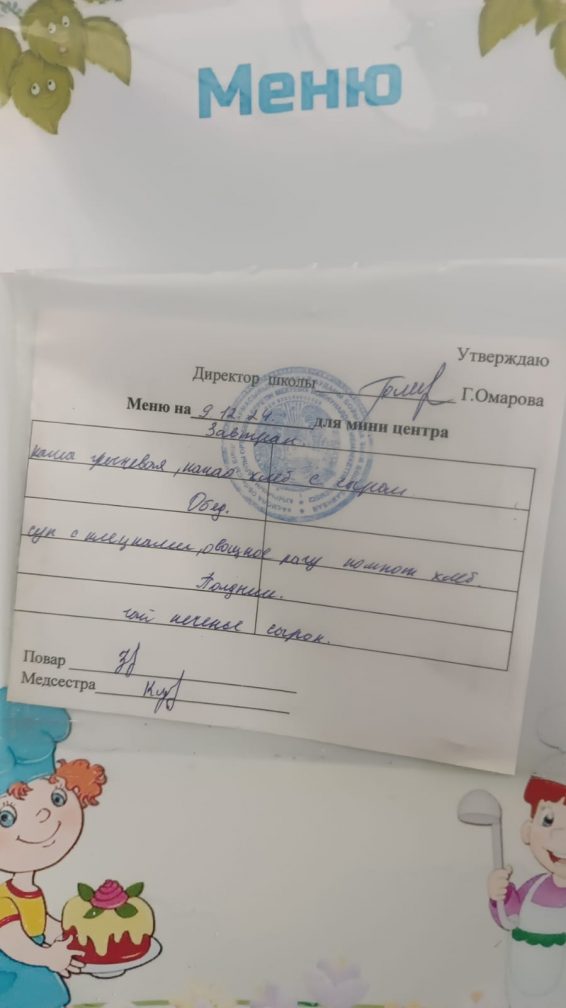 Меню
Утверждаю
Директор школы Г.Омарова
Меню на 9.12.24. для мини центра
Завтрак.
каша гречневая, какао хлеб с сыром
Обед.
суп с клецками, овощное рагу компот хлеб.
Полдник.
чай печенье сырок.
Повар
Медсестра